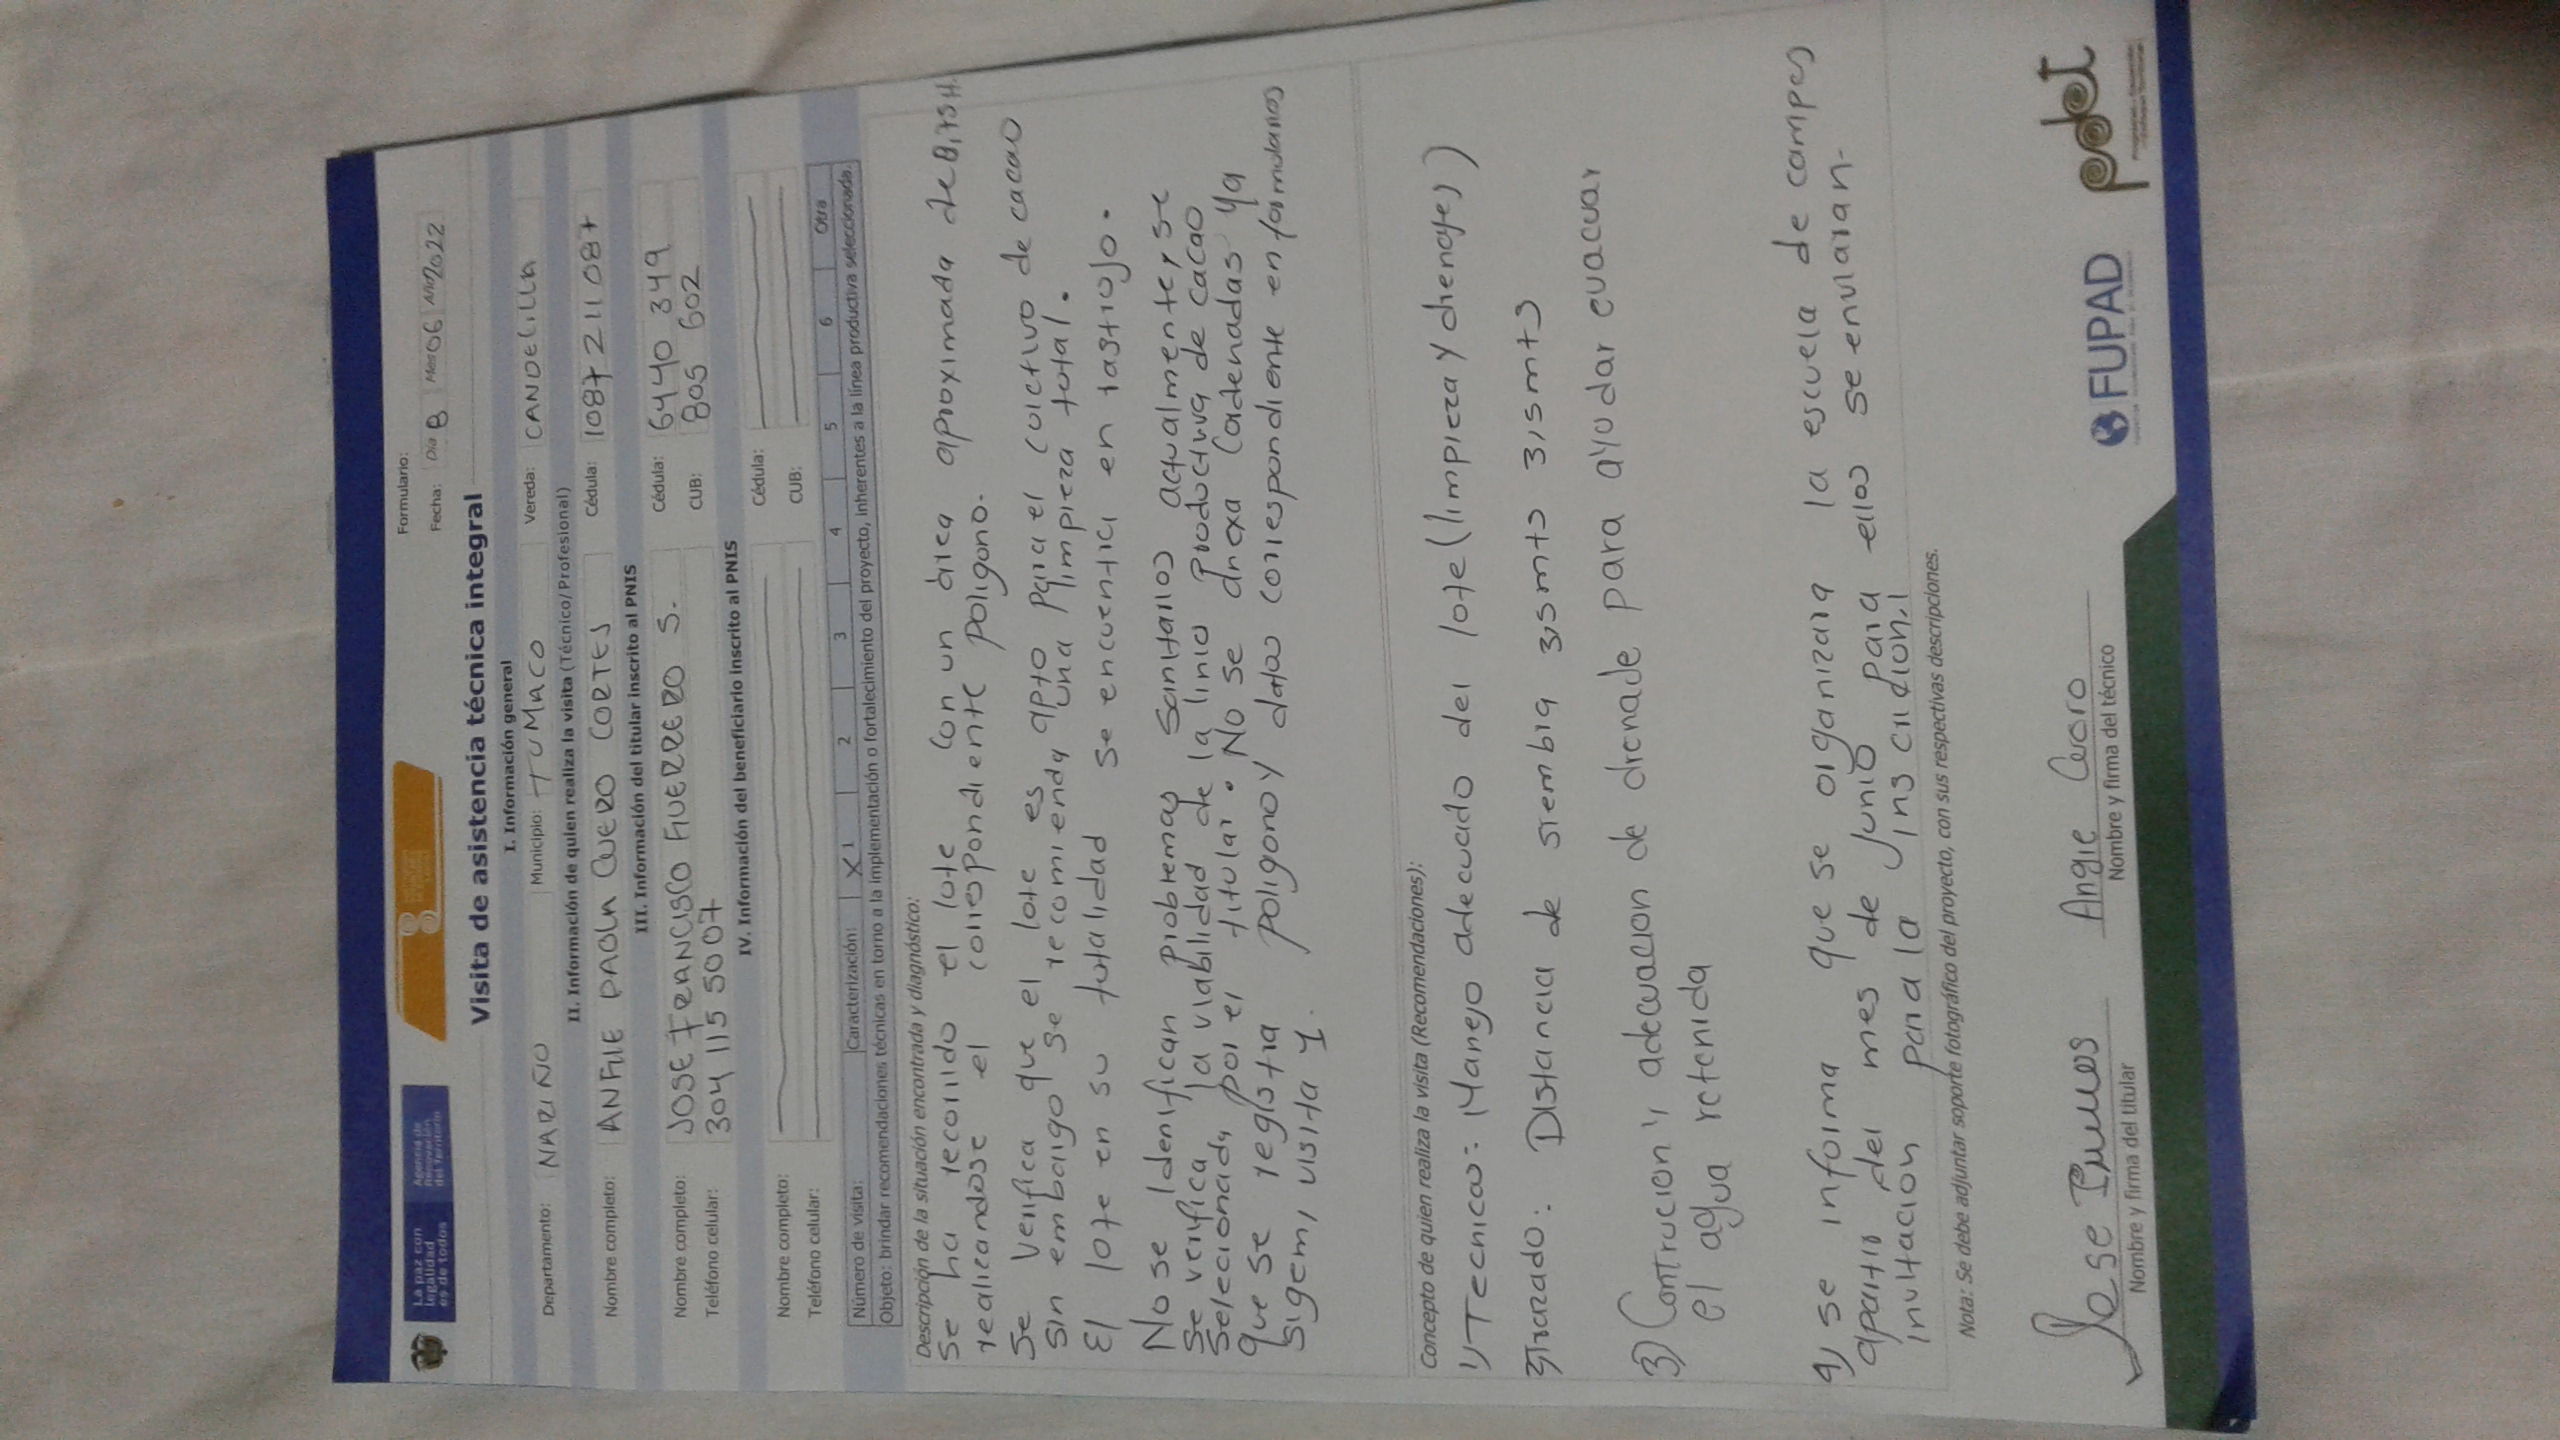 La paz con
legalidad
es de todos
Agencia de
Renovación
del Territorio
Formulario:
Fecha: Día 8 Mes 06 Año 2022
Visita de asistencia técnica integral
I. Información general
Departamento: NARIÑO Municipio: TUMACO Vereda: CANDELILLA
II. Información de quien realiza la visita (Técnico/Profesional)
Nombre completo: PAOLA CUERO CORTES Cédula: 1087211087
III. Información del titular inscrito al PNIS
Nombre completo: JOSE FRANCISCO S. Cédula: 6440 349
Teléfono celular: 304 115 5007 CUB: 805 602
IV. Información del beneficiario inscrito al PNIS
Nombre completo: Cédula:
Teléfono celular: CUB:
Número de visita: Caracterización: X 1 2 3 4 5 6 Otra
Objeto: brindar recomendaciones técnicas en torno a la implementación o fortalecimiento del proyecto, inherentes a la línea productiva seleccionada.
Descripción de la situación encontrada y diagnóstico:
Se ha recorrido el lote con un área aproximada de
realizandose el correspondiente poligono.
Se verifica que el lote es apto para el cultivo de cacao
sin embargo se recomienda una limpieza total.
El lote en su totalidad se encuentra en rastrojo.
No se idenifican problemas sanitarios actualmente, se
se verifica la viabilidad de la linia productiva de cacao
selecionada por el titular. No se anexa Cordenadas ya
que se registra poligono y datos correspondiente en formularios
sigem, visita 1.
Concepto de quien realiza la visita (Recomendaciones):
1) Tecnico: Manejo adecuado del lote (limpieza y drenajes)
2) Trazado: Distancia de siembra 3,5mts 3,5mts
3) Contrucion y adecuacion de drenade para ayudar evacuar
el agua retenida
4) se informa que se organizara la escuela de campos
apartir del mes de Junio para ellos se enviaran-
invitacion para la inscricion.
Nota: Se debe adjuntar soporte fotográfico del proyecto, con sus respectivas descripciones.
Jose Angie Cuero
Nombre y firma del titular Nombre y firma del técnico
FUPAD
pdet